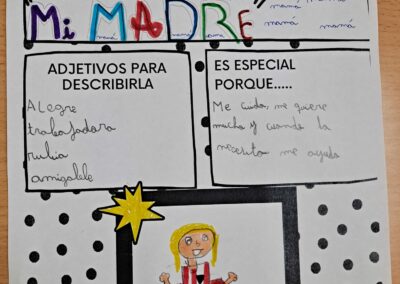 "Mi MADRE"
mamá
mamá mamá
ADJETIVOS PARA
DESCRIBIRLA
Alegre
trabajadora
rubia
amigable
ES ESPECIAL
PORQUE.....
Me cuida, me quiere
mucho y cuando la
necesito me ayuda